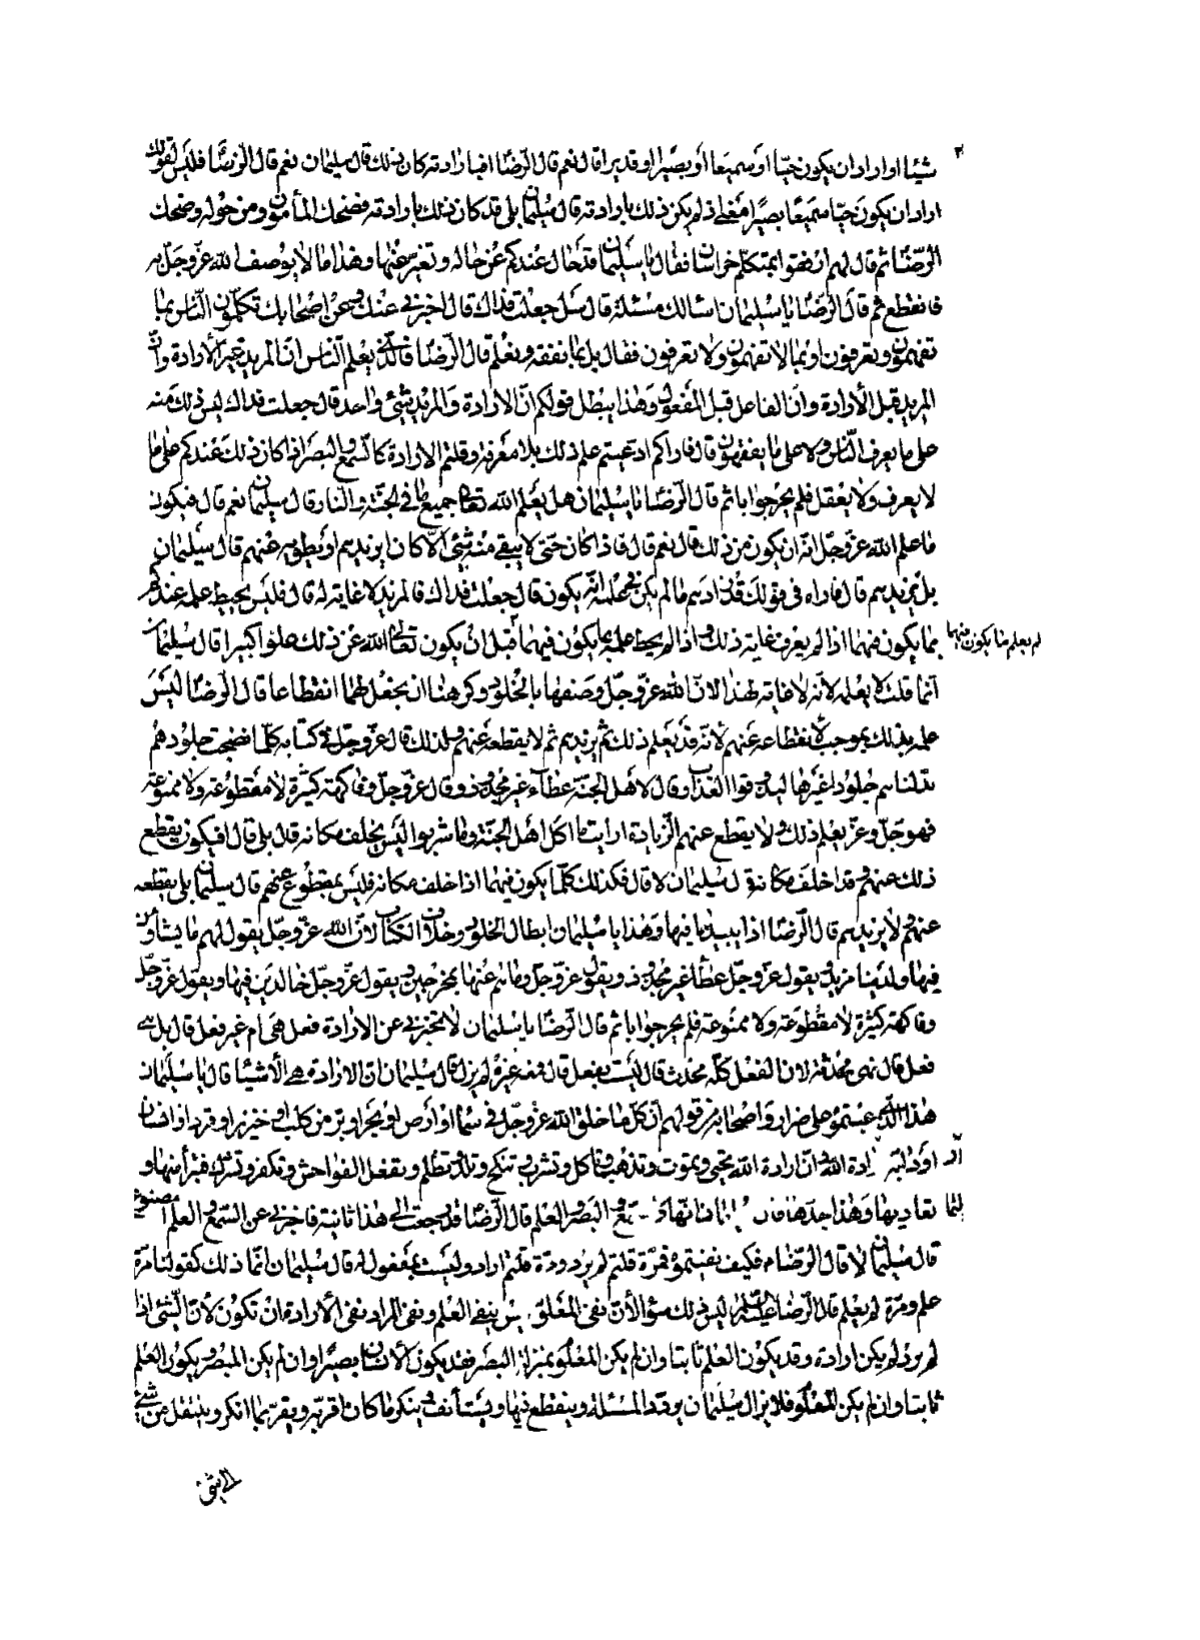 شيئا او اراد ان يكون حيّا او سميعا او بصيرا او قديرا قال نعم قال الرّضا افبارادته كان ذلك قال سليمان نعم قال الرّضا فليس لقولك
اراد ان يكون حيّا سميعا بصيرا معنى اذ لم يكن ذلك بارادته قال سليمان بلى قد كان ذلك بارادته فضحك المأمون ومن حوله وضحك
الرّضا ثم قال لهم ارفقوا بمتكلّم خراسان فقال يا سليمان فقد حال عندكم عن حاله وتغيّر عنها وهذا ما لا يوصف الله عزّ وجلّ به
فانقطع ثم قال الرّضا يا سليمان اسالك مسئلة قال سل جعلت فداك قال اخبرني عنك وعن اصحابك تكلّمون النّاس بما
تفقهون وتعرفون او بما لا تفقهون ولا تعرفون فقال بل بما نفقه ونعلم قال الرّضا فالّذي يعلم النّاس انّ المريد غير الأرادة وانّ
المريد قبل الأرادة وانّ الفاعل قبل المفعول وهذا يبطل قولكم انّ الارادة والمريد شئ واحد قال جعلت فداك ليس ذلك منه
على ما يعرف النّاس ولا على ما يفقهون قال فاراكم ادعيتم علم ذلك بلا معرفة وقلتم الارادة كالسّمع والبصر اذا كان ذلك عندكم على ما
لا يعرف ولا يعقل فلم يحر جوابا ثم قال الرّضا يا سليمان هل يعلم الله تعالى جميع ما في الجنّة والنّار قال سليمان نعم قال فيكون
ما علم الله عزّ وجلّ انّه ان يكون من ذلك قال نعم قال فاذا كان حتى لا يبقى منه شئ الّا كان ايزيدهم او يطويه عنهم قال سليمان
بل يزيدهم قال فاراه في قولك قد زادهم ما لم يكن في علمه انّه يكون قال جعلت فداك فالمزيد لا غاية له قال فليس يحيط علمه عندكم
بما يكون فيهما اذا لم يعرف غاية ذلك واذا لم يحط علمه بما يكون فيهما قبل ان يكون تعالى الله عن ذلك علوّا كبيرا قال سليمان
لم يعلم ما يكون فيهما
انّما قلت لا يعلمه لانّه لا غاية لهذا لانّ الله عزّ وجلّ وصفهما بالخلود وكرهنا ان نجعل لهما انقطاعا قال الرّضا اليس
علمه بذلك بموجب لأنقطاعه عنهم لأنّه قد يعلم ذلك ثم يزيدهم ثم لا يقطعه عنهم ولذلك قال عزّ وجلّ في كتابه كلّما نضجت جلودهم
بدّلناهم جلودا غيرها ليذوقوا العذاب وقال لأهل الجنّة عطاء غير مجذوذ وقال عزّ وجلّ وفاكهة كثيرة لا مقطوعة ولا ممنوعة
فهو جلّ وعزّ يعلم ذلك ولا يقطع عنهم الزّيادة ارايت ما اكل اهل الجنّة وما شربوا اليس يخلف مكانه قال بلى قال افيكون يقطع
ذلك عنهم وقد اخلف مكانه قال سليمان لا قال فكذلك كلّما يكون فيهما اذا اخلف مكانه فليس بمقطوع عنهم قال سليمان بلى يقطعه
عنهم ولا يزيدهم قال الرّضا اذا يبيد ما فيها وهذا يا سليمان ابطال الخلود وخلاف الكتاب لانّ الله عزّ وجلّ يقول لهم ما يشاؤن
فيها ولدينا مزيد ويقول عزّ وجلّ عطاء غير مجذوذ ويقول عزّ وجلّ وما هم عنها بمخرجين ويقول عزّ وجلّ خالدين فيها ويقول عزّ وجلّ
وفاكهة كثيرة لا مقطوعة ولا ممنوعة فلم يحر جوابا ثم قال الرّضا يا سليمان لا تخبرني عن الارادة فعل هي ام غير فعل قال بل هي
فعل قال فهي محدثة لانّ الفعل كلّه محدث قال ليست بفعل قال فمعه غيره لم يزل قال سليمان انّ الارادة هي الأشياء قال يا سليمان
هذا الّذي عبتموه على ضرار واصحابه من قولهم انّ كلّ ما خلق الله عزّ وجلّ في سماء او أرض او بحر او برّ من كلب او خنزير او قرد او انسان
او دابّة ارادة الله وانّ ارادة الله تحيي وتموت وتذهب وتأكل وتشرب وتنكح وتلد وتظلم وتفعل الفواحش وتكفر وتشرك فنبرأ منها و
نعاديها وهذا حدّها قال انّها كالسمع والبصر والعلم قال الرّضا قد رجعت الى هذا ثانية فاخبرني عن السّمع والعلم أمصنوع
قال سليمان لا قال الرّضا فكيف نفيتموه فمرّة قلتم لم يرد ومرّة قلتم اراد وليست بمفعول له قال سليمان انّما ذلك كقولنا مرّة
علم ومرّة لم يعلم قال الرّضا عليه السّلام ليس ذلك سواء لأنّ نفي المعلوم ليس بنفي العلم ونفي المراد نفي الأرادة ان تكون لأنّ الشّئ اذا
لم يرد لم يكن ارادة وقد يكون العلم ثابتا وان لم يكن المعلوم بمنزلة البصر فقد يكون الأنسان بصيرا وان لم يكن المبصر ويكون العلم
ثابتا وان لم يكن المعلوم فلا يزال سليمان يردّد المسئلة وينقطع فيها ويستأنف وينكر ما كان اقرّ به ويقرّ بما انكر وينتقل من شئ
الى شئ